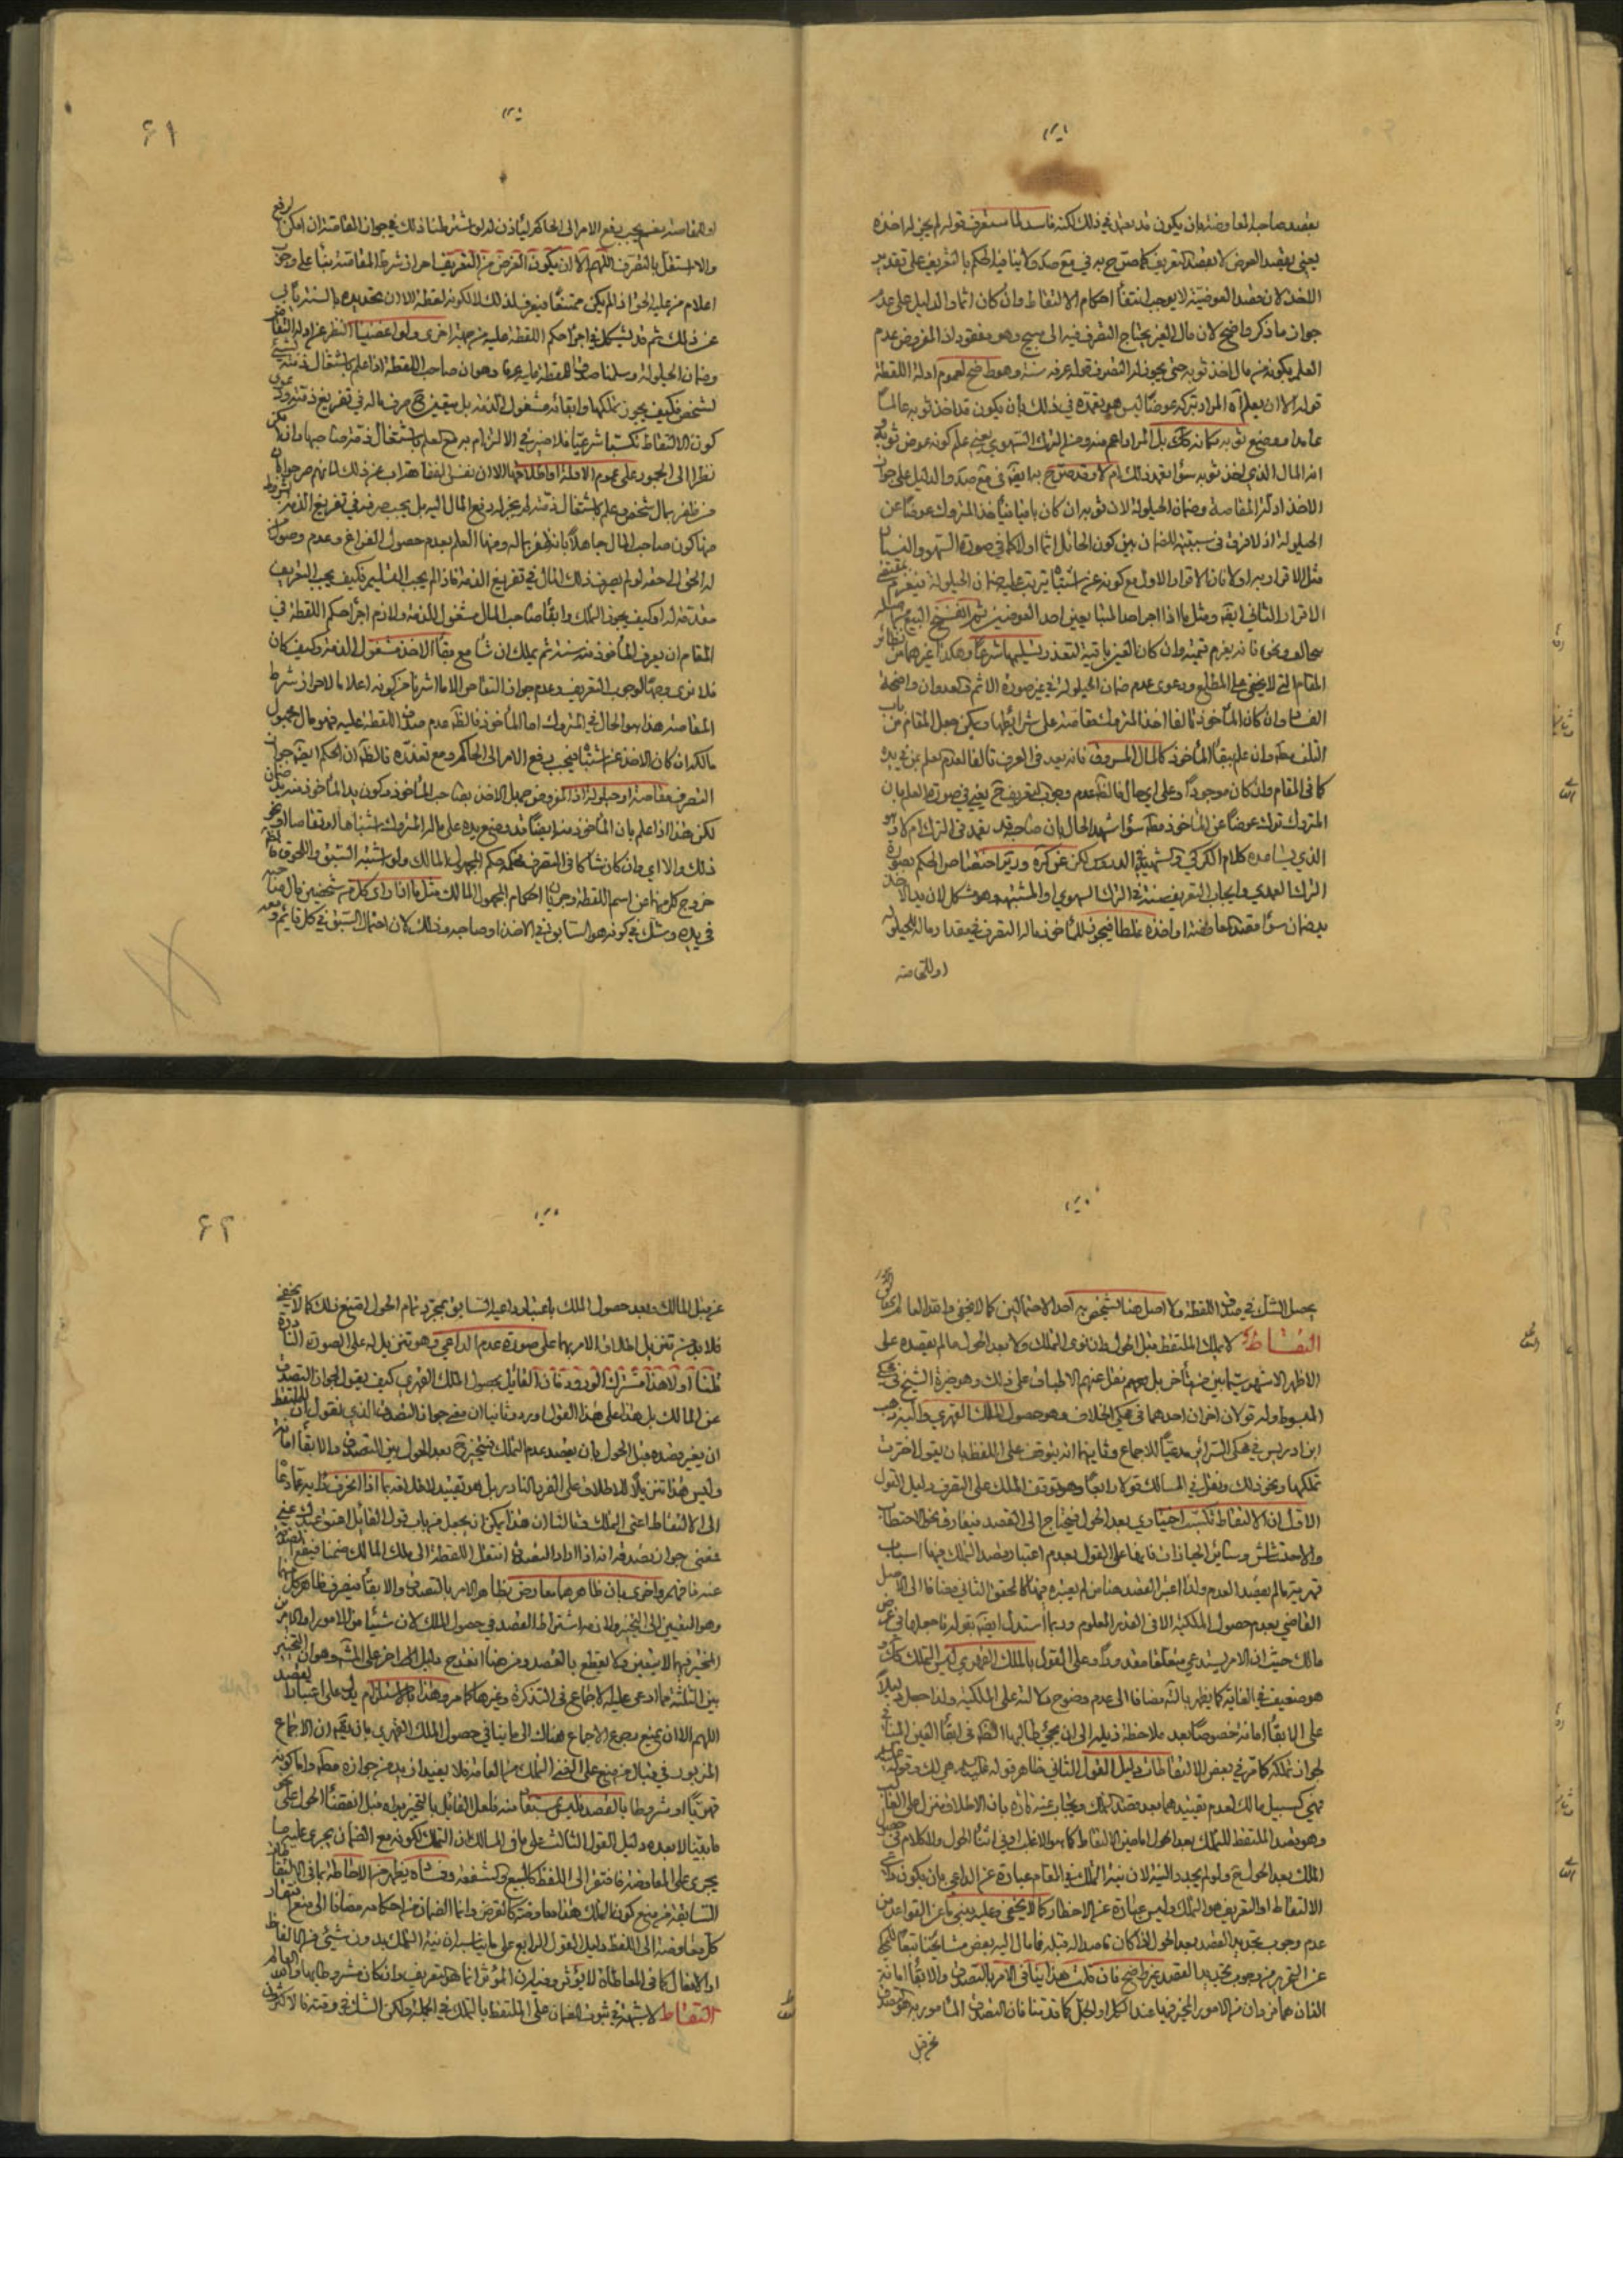 بقصد صاحبه المعاوضة بان يكون قد تعمد في ذلك لكنه فاسد لما ستعرف قوله لم يجز له اخذه
يعني بقصد العوض لا بقصد التعريف كما صرح به في مع صكه ولا ينافيه الحكم بالتعريف على تقدير
الاخذ لان قصد العوضية لا يوجب انتفاء احكام الالتقاط وان كان اثما والدليل على عدم
جواز ما ذكر واضح لان مال الغير يحتاج التصرف فيه الى مبيح وهو مفقود اذ المفروض عدم
العلم بكونه من مال اخذ ثوبه حتى يجوز له التصرف قوله عرفه سنة وهو واضح لعموم ادلة اللقطة
قوله الا ان يعلم اه المراد بتركه عوضا ليس هو تعمده في ذلك بان يكون قد اخذ ثوبه عالما
عامدا ووضع ثوبه مكانه بل المراد اعم منه ومن الترك السهوي يعني علم كونه عوض ثوبه
اما المال الذي اخذ ثوبه سواء تعمد ذلك ام لا وقد صرح به ايضا في مع صكه والدليل على جواز
الاخذ ادلة المقاصة وضمان الحيلولة لان ثوبه ان كان باقيا اخذ المتروك عوضا عن
الحيلولة اذ لا فرق في سببيته للضمان بين كون الحائل اثما او لا كما في صورة السهو والنسيان
مثل الاقرار به اولا فان الاقرار الاول مع كونه عن اشتباه يترتب عليه ضمان الحيلولة فيغرم بمقتضى
الاقرار الثاني ايضا ومثل ما اذا اجر احد المتبايعين احد العوضين ثم انفسخ البيع
بتحالف ونحوه فانه يغرم قيمته وان كان العين باقية لتعذر تسليمها شرعا وهكذا غيرهما من نظائر
المقام التي لا يخفى على المطلع ودعوى عدم ضمان الحيلولة في غير صورة الاثم والعدوان واضحة
الفساد وان كان المأخوذ تالفا اخذ المتروك مقاصة على شرائطها ويمكن جعل المقام من باب
التلف مطلقا وان علم ببقاء المأخوذ كالمال المسروق فانه يعد في العرف تالفا لعدم العلم بمن في يده
كما في المقام وان كان موجودا وعلى اي حال فالظاهر عدم وجوب التعريف ح يعني في صورة العلم بان
المتروك ترك عوضا عن المأخوذ مطلقا سواء شهد الحال بان صاحبه قد تعمد في الترك ام لا وهو
الذي يساعده كلام الكركي والشهيد في الدروس لكن عن كره وربما اختصاص الحكم بصورة
الترك العمدي وايجاب التعريف سنة في الترك السهوي او المشتبه وهو مشكل لان يد الاخذ
يد ضمان سواء قصد المعاوضة او اخذه غلطا فيجوز للمأخوذ ماله التصرف في مقدار ماله للحيلولة
او للمقاصة
او للمقاصة نعم يجب رفع الامر الى الحاكم ليأذن له لو اشترطنا ذلك في جواز المقاصة ان امكن الرفع
والا استقل بالتصرف اللهم الا ان يكون الغرض من التعريف احراز شرط المقاصة بناء على وجوب
اعلام من عليه الحق اذا لم يكن ممتنعا فيعرف لذلك لا لكونه لقطة الا ان تحديده بالسنة يأبى
عن ذلك ثم قد يشكل في اجراء حكم اللقطة عليه من جهة اخرى ولو اغمضنا النظر عن ادلة التقاص
وضمان الحيلولة وسلمنا صدق اللقطة عليه عرفا وهو ان صاحب اللقطة اذا علم باشتغال ذمته
لشخص فكيف يجوز تملكها وابقائه مشغول الذمة بل يتعين ح صرف ماله في تفريغ ذمته ودعوى
كون الالتقاط تكسبا شرعيا فلا ضير في الالتزام به مع العلم باشتغال ذمة صاحبها وان امكن
نظرا الى الجمود على عموم الادلة واطلاقها الا ان نفس الفقاهة اب عن ذلك لما نهم صرحوا بان
من ظفر بمال شخص وعلم باشتغال ذمته لم يجز له دفع المال اليه بل يجب صرفه في تفريغ الذمة بشروط
منها كون صاحب المال جاهلا بانه ظفر بماله ومنها العلم بعدم حصول الفراغ وعدم وصول من
له الحق الى حقه لو لم يصرف ذلك المال في تفريغ الذمة فاذا لم يجب التسليم فكيف يجب التعريف
مقدمة له او كيف يجوز التملك وابقاء صاحب المال مشغول الذمة ولازم اجراء حكم اللقطة في
المقام ان يعرف المأخوذ منه سنة ثم يملك ان شاء مع بقاء الاخذ مشغول الذمة وكيف كان
فلا نرى وجها لوجوب التعريف وعدم جواز التقاص الا ما اشرنا من كونه اعلاما لاحراز شرط
المقاصة هذا هو الحال في المتروك اما المأخوذ فالظاهر عدم صدق اللقطة عليه فهو مال مجهول
مالكه ان كان الاخذ عن اشتباه فيجب رفع الامر الى الحاكم ومع تعذره فالظاهر ان الحكم ايضا جواز
التصرف مقاصة او حيلولة اذ المفروض جهل الاخذ بصاحب المأخوذ وكون يد المأخوذ منه يد ضمان
لكن هذا اذا علم بان المأخوذ منه ايضا قد وضع يده على ماله المتروك اشتباها او تقاصا او نحو
ذلك والا اي وان كان شاكا في التصرف فحكمه حكم المجهول المالك ولو اشتبه السبق واللحوق
خروج كل منهما عن اسم اللقطة وجريان احكام المجهول المالك مثل ما اذا رأى كل من شخصين مال صاحبه
في يده وشك في كونه هو السابق في الاخذ او صاحبه وذلك لان احتمال السبق في كل قائم ومعه
يحصل الشك في صدق اللقطة ولا اصل هنا يشخص به احد الاحتمالين كما لا يخفى والله العالم
التقاط لا يملك الملتقط قبل الحول وان نوى التملك ولا بعد الحول ما لم يقصده على
الاظهر الاشهر بين من تأخر بل بعضهم نقل عنهم الاطباق على ذلك وهو خيرة الشيخ في محكي
المبسوط وله قولان اخران احدهما في محكي الخلاف وهو حصول الملك القهري واليه ذهب
ابن ادريس في محكي السرائر مدعيا للاجماع وثانيهما انه يتوقف على اللفظ بان يقول اخترت
تملكها ونحو ذلك ونقل في المسالك قولا رابعا وهو توقف الملك على التصرف دليل القول
الاول ان الالتقاط تكسب اختياري بعد الحول فيحتاج الى القصد فيفارق نحو الاحتطاب
والاحتشاش وسائر الحيازات فانها على القول بعدم اعتبار قصد التملك فيها اسباب
قهرية ما لم يقصد العدم ولذا اعتبر القصد هنا من لم يعتبره فيها كالمحقق الثاني مضافا الى الاصل
القاضي بعدم حصول الملكية الا في القدر المعلوم وربما استدل ايضا بقوله فاجعلها في عرض
مالك حيث ان الامر يستدعي متعلقا مقدورا وعلى القول بالملك القهري ليس التملك كذلك
هو ضعيف في الغاية كما يظهر بالتامل مضافا الى عدم وضوح دلالته على الملكية ولذا جعل دليلا
على الابقاء امانة خصوصا بعد ملاحظة ذيله الى ان يجئ طالبها الظاهر في ابقاء العين المنافي
لجواز تملكه كما مر في بعض الالتقاطات دليل القول الثاني ظاهر قوله عليه السلام هي لك وقوله
فهي كسبيل مالك لعدم تقييدهما بعد قصد التملك ويجاب عنه تارة بان الاطلاق منزل على الغالب
وهو قصد الملتقط للتملك بعد الحول اما حين الالتقاط كما هو الاغلب او في اثناء الحول والكلام في حصول
الملك بعد الحول ح ولو لم يجدد النية لان نية التملك في المقام عبارة عن الداعي بان يكون داعي
الالتقاط او التعريف هو التملك وليس عبارة عن الاخطار كما لا يخفى وعليه يبنى ما عن القواعد من
عدم وجوب تجديد القصد بعد الحول اذا كان قاصدا له قبله فما مال اليه بعض مشايخنا تبعا للمحكي
عن التحرير من وجوب تجديد القصد غير واضح فان قلت هذا ينافي الامر بالتصدق والابقاء امانة
اللذان هما من الامور المخير فيها عند الكل او الجل كما قدمنا فان التصدق المأمور به هو تصدق
نحو قبل
عن قبل المالك وبعد حصول الملك باعتبار داعيه السابق بمجرد تمام الحول امتنع ذلك كما لا يخفى
فلا بد من تنزيل اطلاق الامر بهما على صورة عدم الداعي وهو تنزيل له على الصورة النادرة
قلنا اولا هذا مشترك الورود فان القائل بحصول الملك القهري كيف يقول بجواز التصدق
عن المالك بل هذا على هذا القول اورد وثانيا ان معنى جواز التصدق الذي نقول به ان للملتقط
ان يغير قصده قبل الحول بان يقصد عدم التملك فيتخير ح بعد الحول بين التصدق والابقاء امانة
وليس هذا تنزيلا للاطلاق على الفرد النادر بل هو تقييد لاطلاقه بما اذا انحرف رأيه عما دعاه
الى الالتقاط اعني التملك وثالثا ان هذا يمكن ان يجعل من باب قول القائل اعتق عبدك عني
فمعنى جواز تصدقه انه اذا اراد التصدق انتقل اللقطة الى ملك المالك ضمنا فيقع التصدق
عنه فافهم واخرى بان ظاهرهما معارض بظاهر الامر بالتصدق والابقاء فيصرف ظاهر كل منهما
وهو التعيين الى التخيير ولازمه اشتراط القصد في حصول الملك لان شيئا من الامور او الامرين
المخير فيها لا يتعين ولا يقطع بالقصد ومن هنا انقدح دليل اخر على المشهور وهو ان التخيير
بين الثلثة مما ادعي عليه الاجماع في التذكرة وغيرها كما مر وهذا بالالتزام يدل على اعتبار القصد
اللهم الا ان يمنع رجوع الاجماع هناك الى ما ينافي حصول الملك القهري بان يقال ان الاجماع
المزبور في قبال من منع على الغني التملك من العامة فلا يفيد ازيد من جواز مطلقا واما كونه
قهريا او مشروطا بالقصد فليس مستفادا منه فلعل القائل بالتخيير يريد قبل انقضاء الحول على نحو
ما بينا لا بعده دليل القول الثالث على ما في المسالك ان التملك لكونه مع الضمان يجري عليه ما
يجري على المعاوضة فافتقر الى اللفظ كالبيع والشفعة وفساده يظهر من الاحاطة بما في الالتقاط
السابقة من منع كون التملك هنا معاوضة كالقرض وانما الضمان من احكامه مضافا الى منع افتقار
كل معاوضة الى اللفظ دليل القول الرابع على ما يناسب ان نية التملك بدون شيئ من الالفاظ
او الافعال كما في المعاطاة لا يؤثر وفيه ان المؤثر انما هو التعريف وان كان مشروطا بها والله العالم
التقاط لا شبهة في ثبوت الضمان على الملتقط بالتملك في الجملة ولكن الشك في وقته فالاكثرون